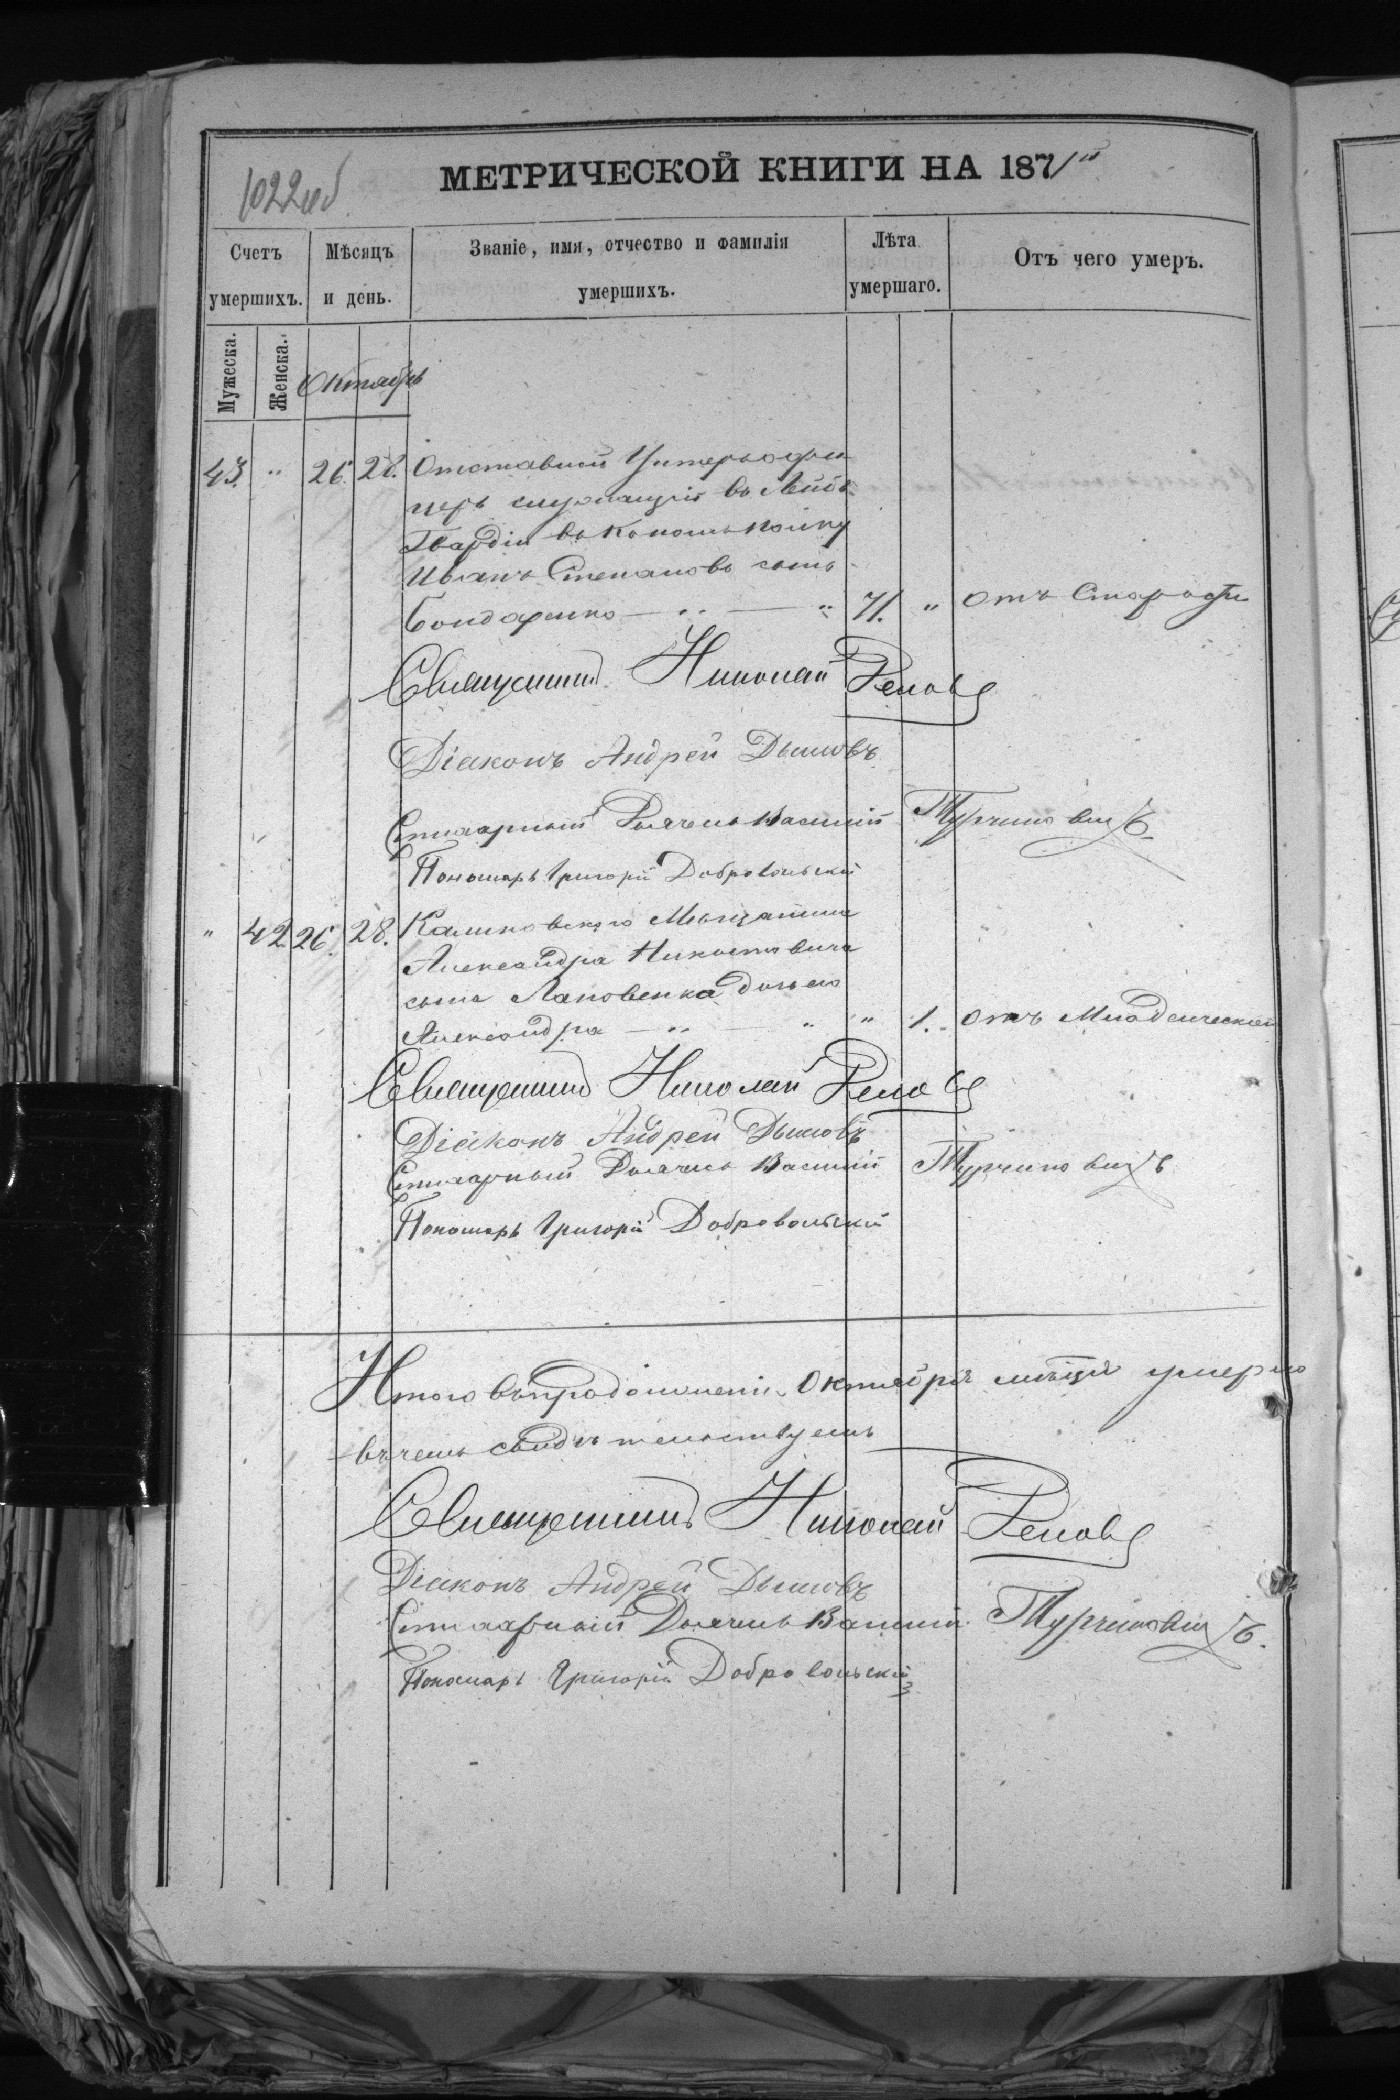 1022 об
МЕТРИЧЕСКОЙ КНИГИ НА 1871й
Счетъ умершихъ.
Мѣсяцъ и день.
Званіе, имя, отчество и фамилія умершихъ.
Лѣта умершаго.
Отъ чего умеръ.
Мужеска.
Женска.
Октябрь
43. " 26. 28. Отставной Унтеръ офи
церъ служащій въ Лейбъ
Гвардіи въ полку
Иванъ Степановъ сынъ
Бондаренко — " — " 71. " отъ Старости
Священникъ Николай
Діаконъ Андрей Дымовъ
Стихарный Дьячекъ Василій Турчиновичъ
Пономарь Григорій Добровольскій
" 42 26. 28. Мещанина
Александра
сына Лановенка дочь его
Александра — " — " " 1. отъ Младенческой
Священникъ Николай
Діаконъ Андрей Дымовъ
Стихарный Дьячекъ Василій Турчиновичъ
Пономарь Григорій Добровольскій
Итого въ продолженіи Октября мѣсяца умерло
въ чемъ свидѣтельствуемъ
Священникъ Николай
Діаконъ Андрей Дымовъ
Стихарный Дьячекъ Василій Турчиновичъ.
Пономарь Григорій Добровольскій